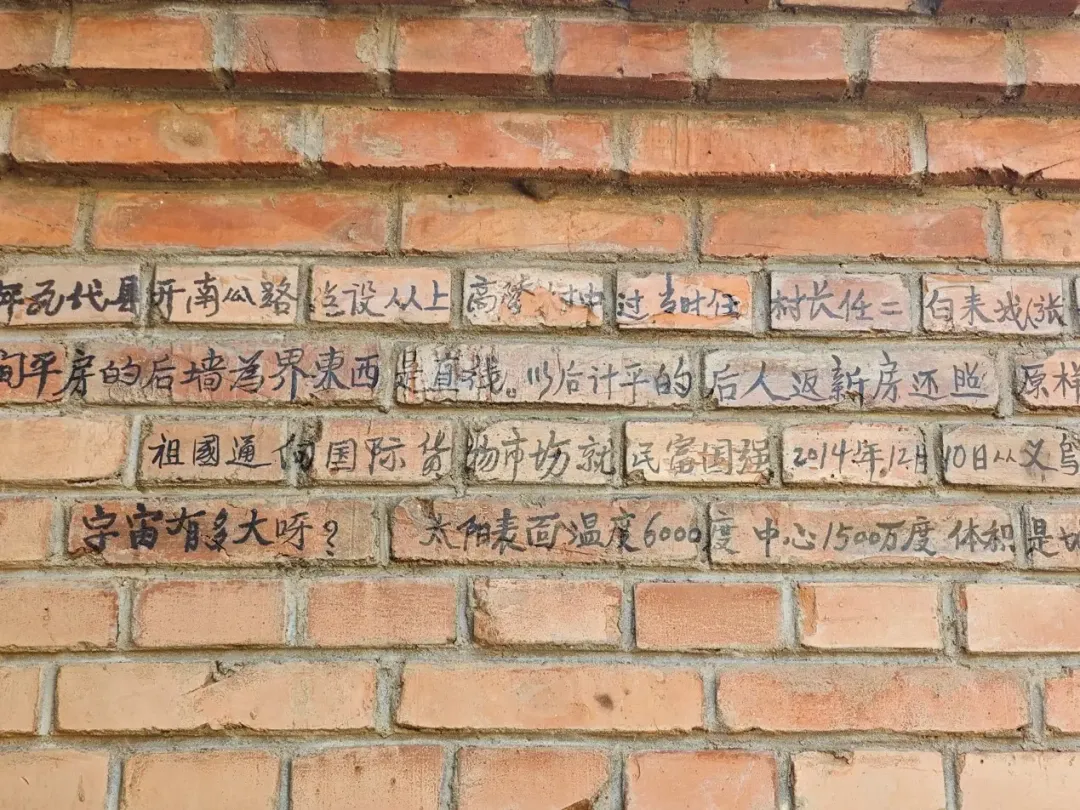 县开南公路 当设从上 过 当时任 村长任二 白来戏(张
间平房的后墙為界東西是直线。以后计平的后人返新房还照原样
祖國通向国际货物市场就民富国强2014年12月10日从义
宇宙有多大呀? 太阳表面温度6000度中心1500万度体积是